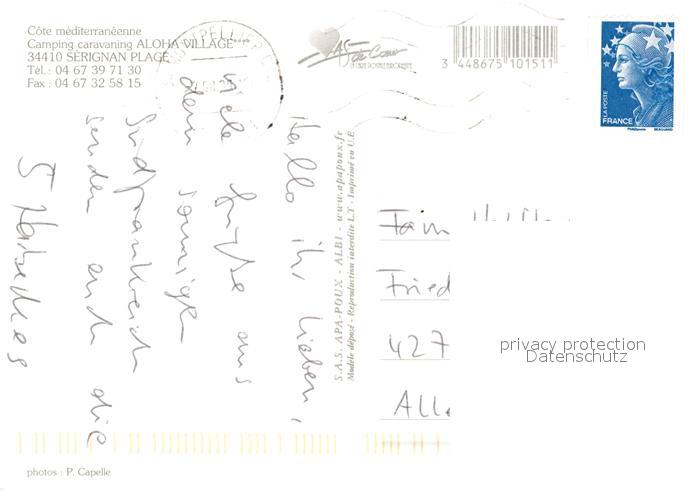 Côte méditerranéenne
Camping caravaning ALOHA VILLAGE***
34410 SÉRIGNAN PLAGE
Tél.: 04 67 39 71 30
Fax : 04 67 32 58 15
As de Cœur
3 448675 101511
LA POSTE
FRANCE
Hallo ihr Lieben,
viele Grüße aus
dem sonnigen
Südfrankreich
senden euch die
S.A.S. APA-POUX - ALBI - www.apapoux.fr
Modèle déposé - Reproduction interdite L.T - Imprimé en U.E
Fam
Fried
427
All
privacy protection
Datenschutz
photos : P. Capelle